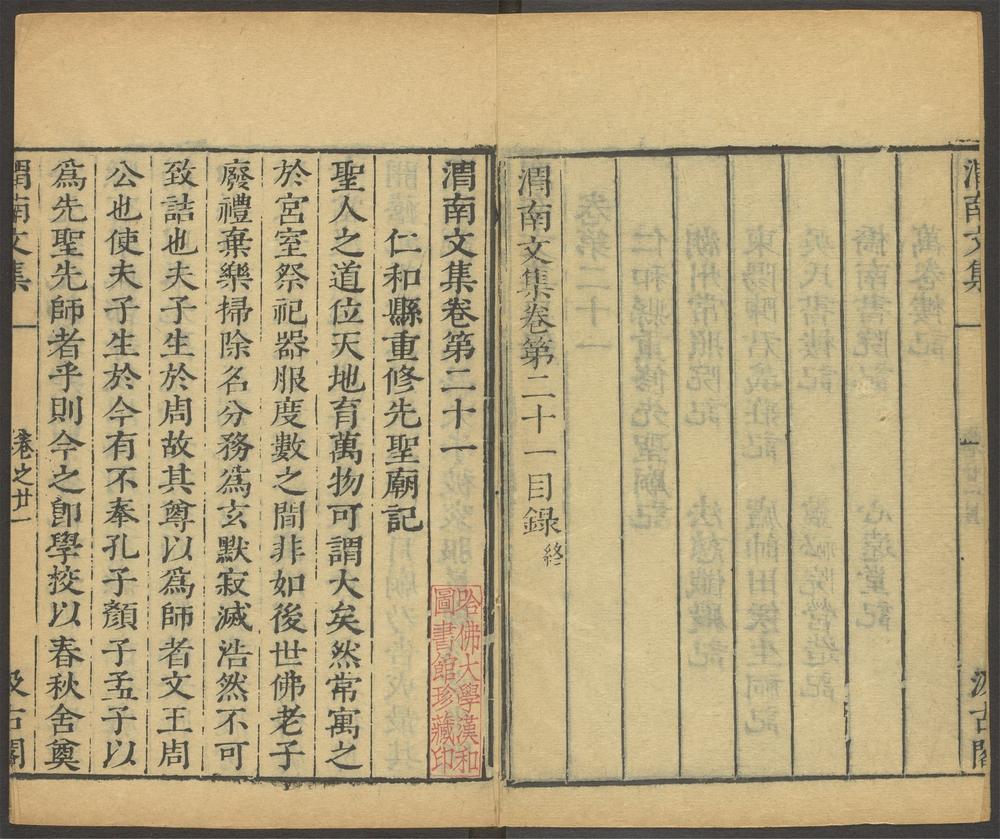 渭南文集
汲古閣
渭南文集卷第二十一目錄終
哈佛大學漢和
圖書館珍藏印
渭南文集卷第二十一
仁和縣重修先聖廟記
聖人之道位天地育萬物可謂大矣然常寓之
於宮室祭祀器服度數之間非如後世佛老子
廢禮棄樂掃除名分務爲玄默寂滅浩然不可
致詰也夫子生於周故其尊以爲師者文王周
公也使夫子生於今有不奉孔子顏子孟子以
爲先聖先師者乎則今之郎學挍以春秋舍奠
渭南文集
卷之廿一
一
汲古閣